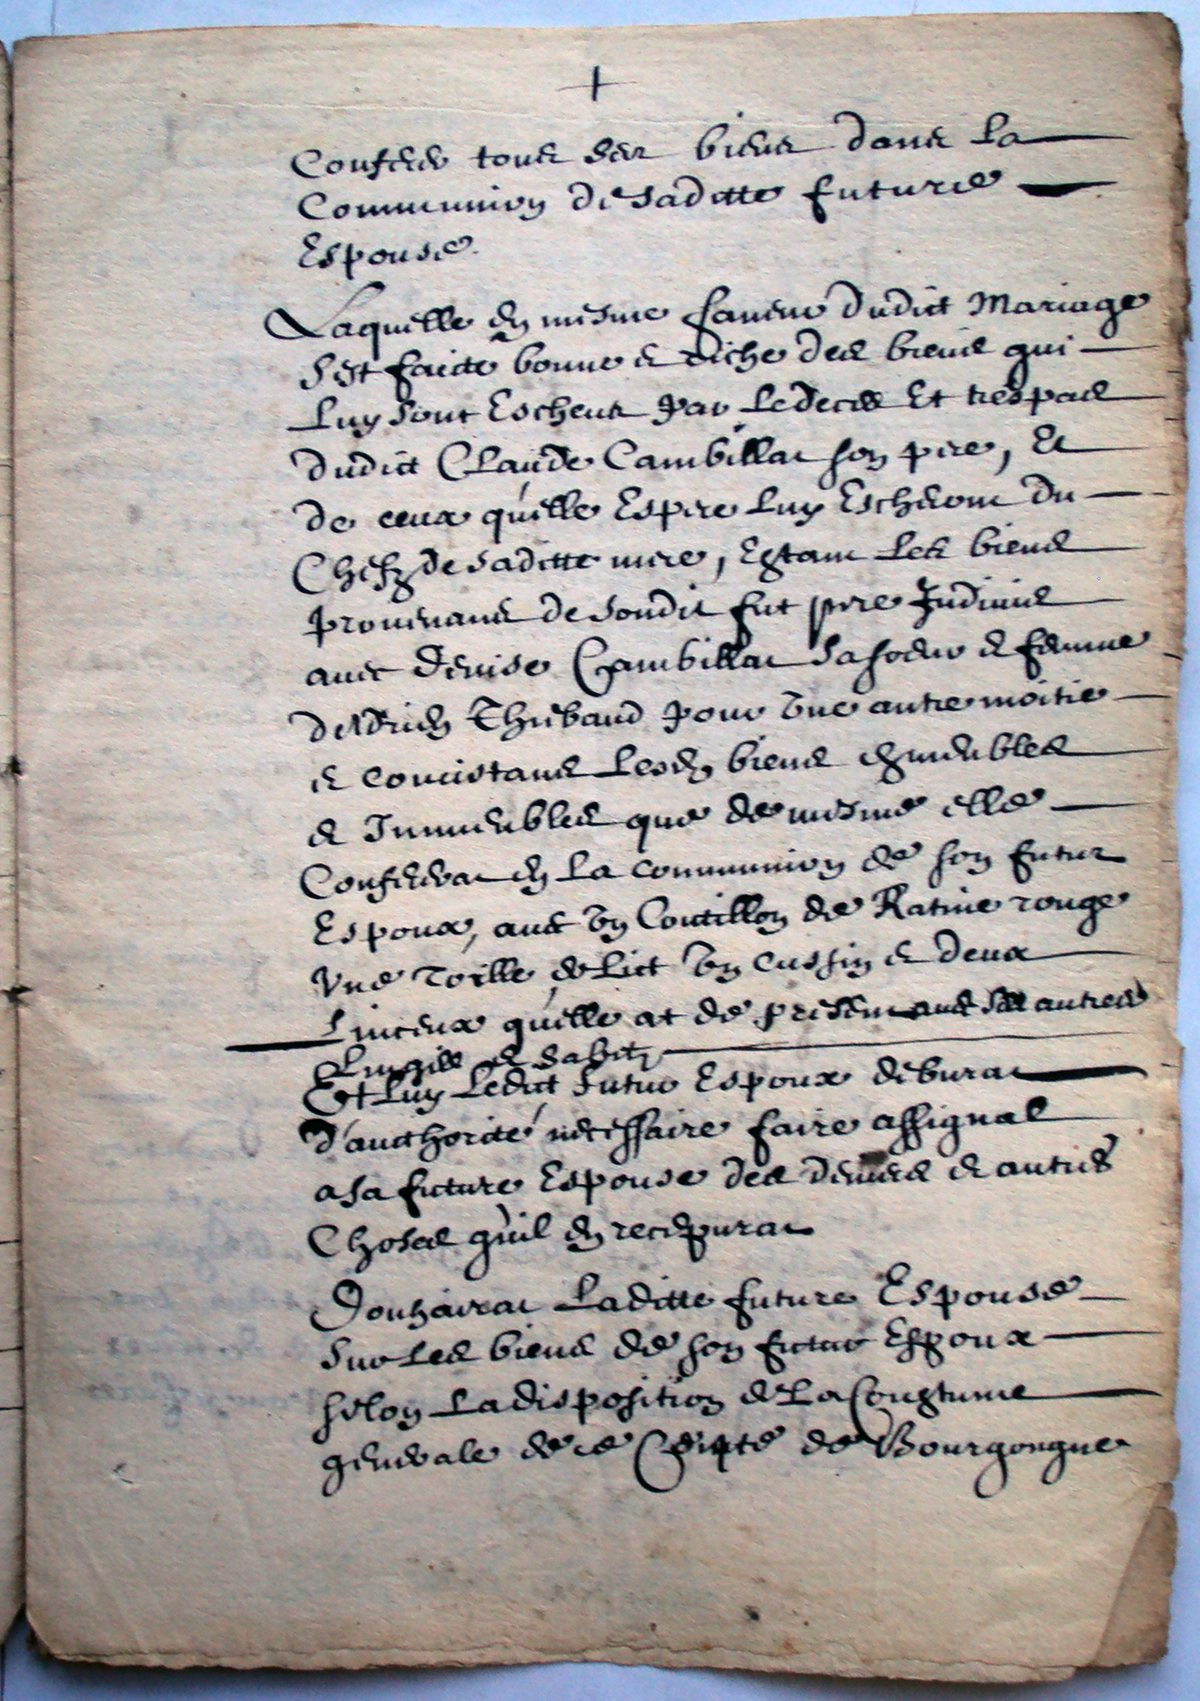 +
Conferer tous ses biens dans la
Communion de saditte future
Espouse.
Laquelle en mesme faveur dudict Mariage
s'est faicte bonne et riche des biens qui
luy sont Escheus par le deces Et trespas
dudict Claude Cambillar son pere, Et
de ceux qu'elle Espere luy Escheront du
Chefz de saditte mere, Estant les biens
provenans de sondit fut pere Indivis
avec Denise Cambillar sa soeur et femme
d'Adrien Thiebaud pour une autre moitie
et concistans lesd. biens en meubles
et Immeubles que de mesme elle
Conferera en la communion de son futur
Espoux, avec un Coutillon de Ratine rouge
une toille de lict un cussin et deux
linceux qu'elle at de present avec ses autres
Lingess et habitz
Et luy ledict futur Espoux deburat
d'authorité necessaire faire assignal
a sa future Espouse des deniers et autres
Choses qu'il en recepurat
Douhairat laditte future Espouse
sur les biens de son futur Espoux
selon la disposition de la Coustume
generale de ce Compté de Bourgongne